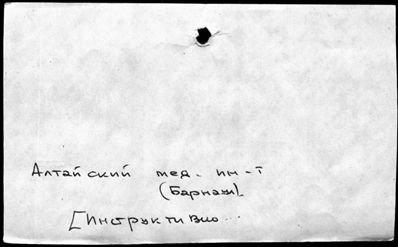 Алтайский мед. ин-т
(Барнаул)
[Инструктивно...